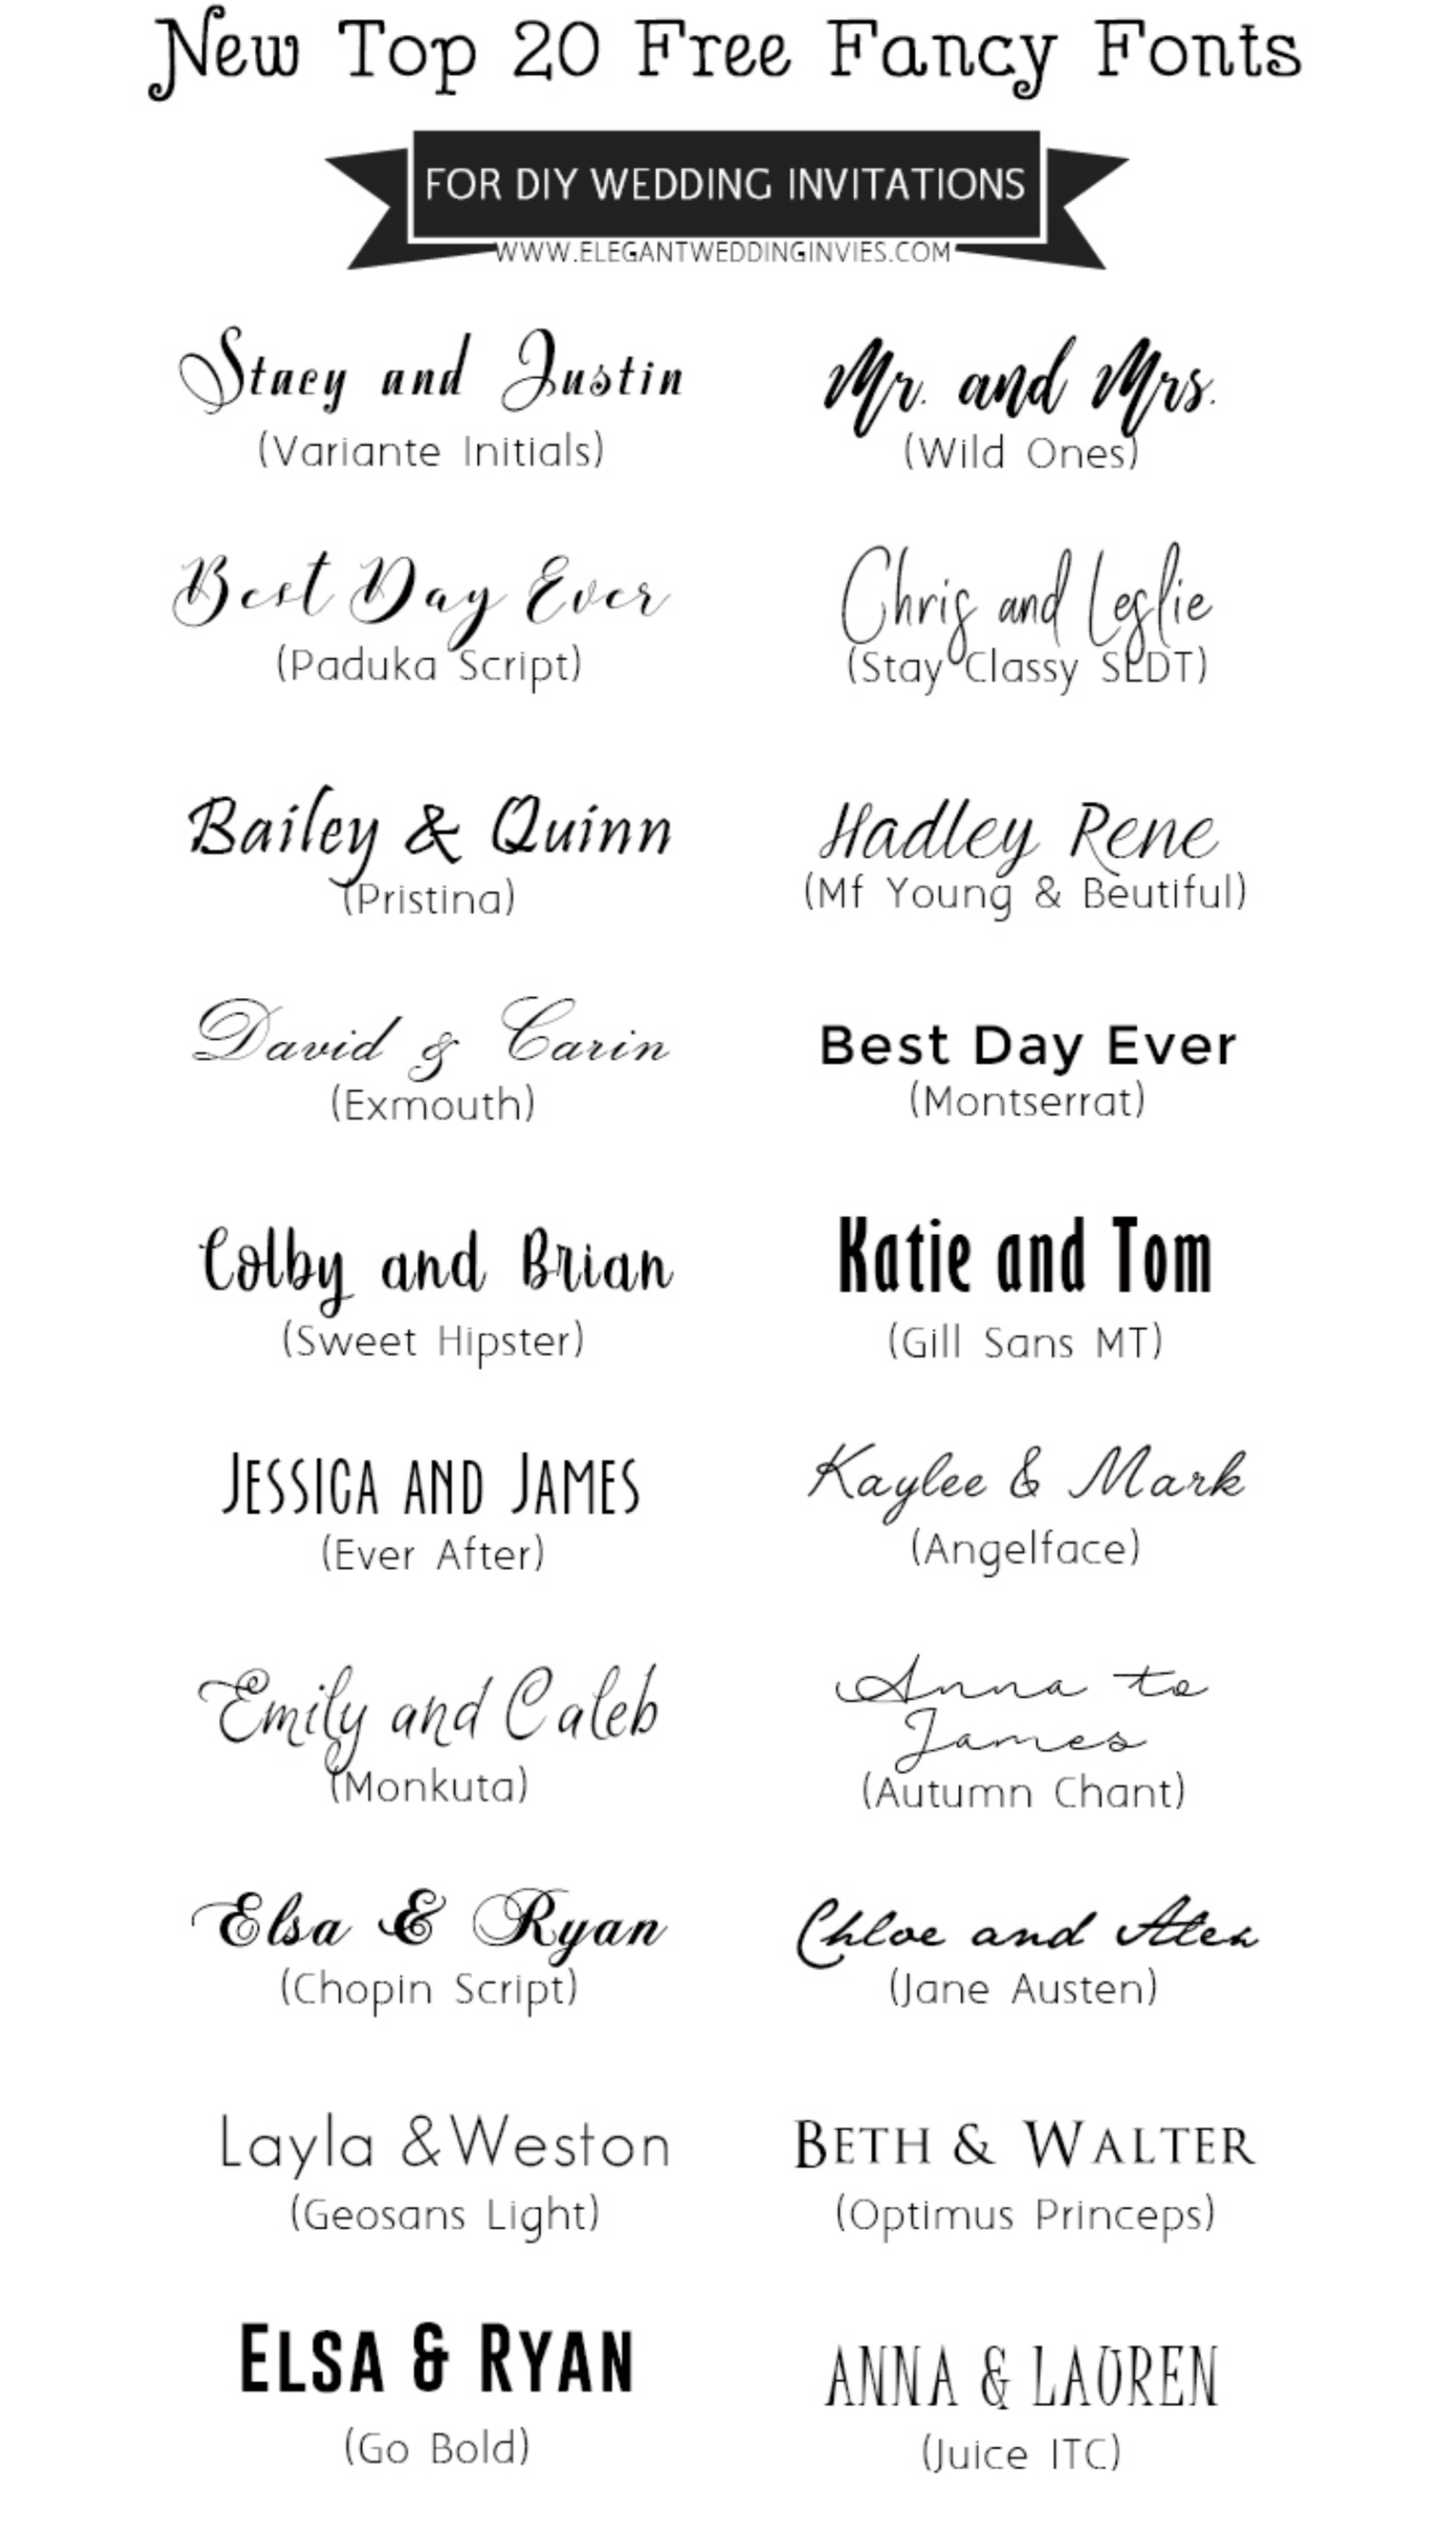 New Top 20 Free Fancy Fonts
FOR DIY WEDDING INVITATIONS
WWW.ELEGANTWEDDINGINVIES.COM
Stacy and Justin
(Variante Initials)
Mr. and Mrs.
(Wild Ones)
Best Day Ever
(Paduka Script)
Chris and Leslie
(Stay Classy SLDT)
Bailey & Quinn
(Pristina)
Hadley Rene
(Mf Young & Beutiful)
David & Carin
(Exmouth)
Best Day Ever
(Montserrat)
Colby and Brian
(Sweet Hipster)
Katie and Tom
(Gill Sans MT)
JESSICA AND JAMES
(Ever After)
Kaylee & Mark
(Angelface)
Emily and Caleb
(Monkuta)
Anna to
James
(Autumn Chant)
Elsa & Ryan
(Chopin Script)
Chloe and Alex
(Jane Austen)
Layla &Weston
(Geosans Light)
BETH & WALTER
(Optimus Princeps)
ELSA & RYAN
(Go Bold)
ANNA & LAUREN
(Juice ITC)